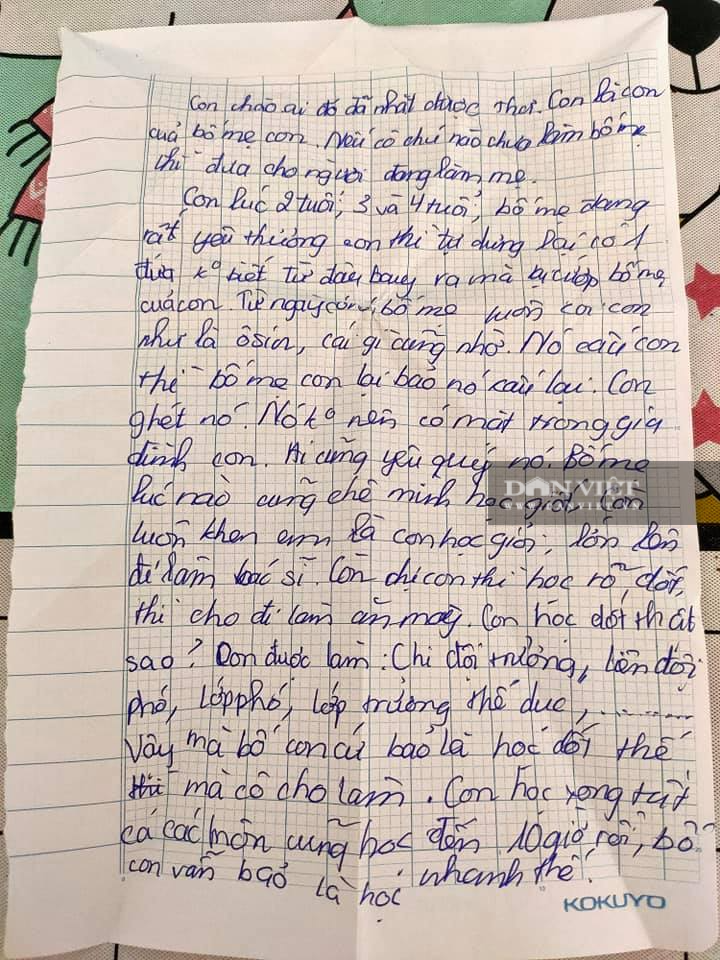 Con chào ai đó đã nhặt được thư. Con là con
của bố mẹ con. Nếu cô chú nào chưa làm bố mẹ
thì đưa cho người đang làm mẹ.
Con lúc 2 tuổi, 3 và 4 tuổi, bố mẹ đang
rất yêu thương con thì tự dưng lại có 1
đứa k° biết từ đâu bay ra mà cướp bố mẹ
của con. Từ ngày có nó, bố mẹ luôn coi con
như là ôsin, cái gì cũng nhờ. Nó cấu con
thì bố mẹ con lại bảo nó cấu lại. Con
ghét nó. Nó k° nên có mặt trong gia
đình con. Ai cũng yêu quý nó. Bố mẹ
lúc nào cũng chê mình học giốt. Còn
luôn khen em là con học giỏi, lớn lên
đi làm bác sĩ. Còn chị con thì học rõ dốt,
thì cho đi làm ăn mày. Con học dốt thật
sao? Con được làm: Chi đội trưởng, liên đội
phó, lớp phó, lớp trưởng thể dục, ..........
Vậy mà bố con cứ bảo là học dốt thế
mà cô cho làm. Con học xong tất
cả các môn cũng học đến 10 giờ rồi, bố
con vẫn bảo là học nhanh thế.
DÂN VIỆT
KOKUYO